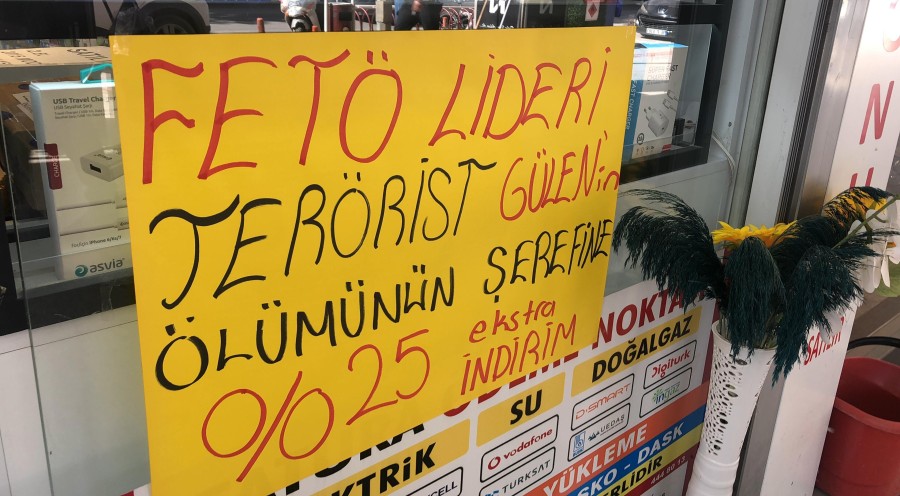 USB Travel Charger
asvia
FETÖ LİDERİ
TERÖRİST GÜLEN'in
ÖLÜMÜNÜN ŞEREFİNE
%25 ekstra
İNDİRİM
NOKTA
DOĞALGAZ
SU
Digiturk
D-SMART
ingaz
vodafone
UEDAŞ
TÜRKSAT
YÜKLEME
DASK
444 80 13
N